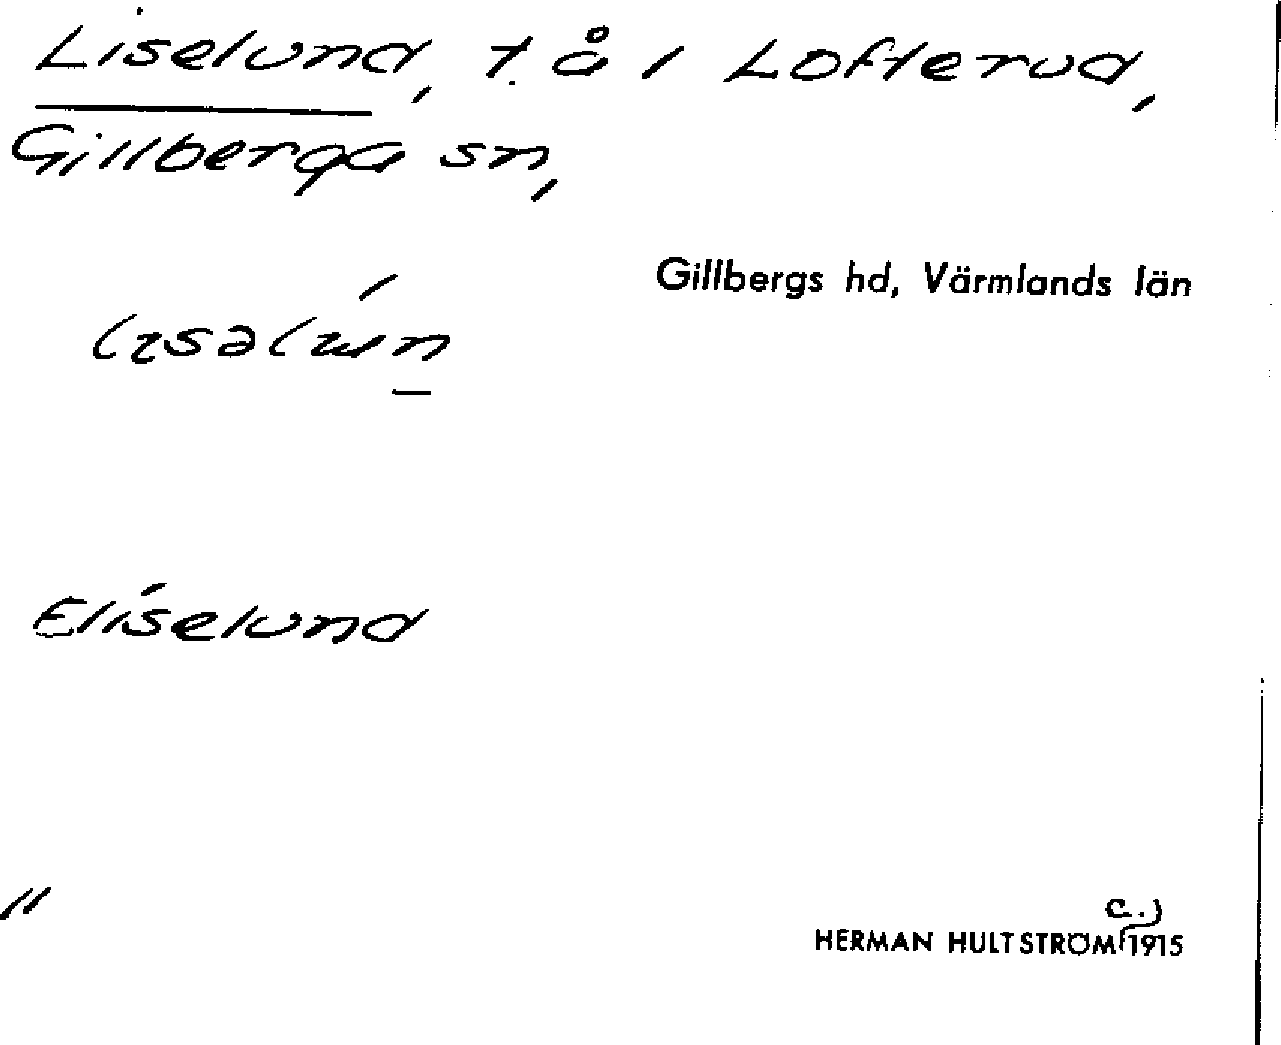 Liselund, t. å i Lofterud,
Gillberga sn,
Gillbergs hd, Värmlands län
Eliselund
"
c.)
HERMAN HULTSTRÖM 1915